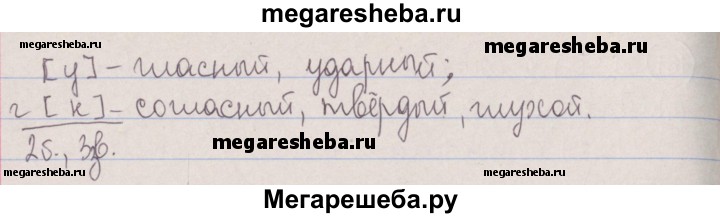 megaresheba.ru
megaresheba.ru
megaresheba.ru
[у] – гласный, ударный;
г [к] – согласный, твёрдый, глухой.
megaresheba.ru
2б., 3зв.
megaresheba.ru
megaresheba.ru
Мегарешеба.ру